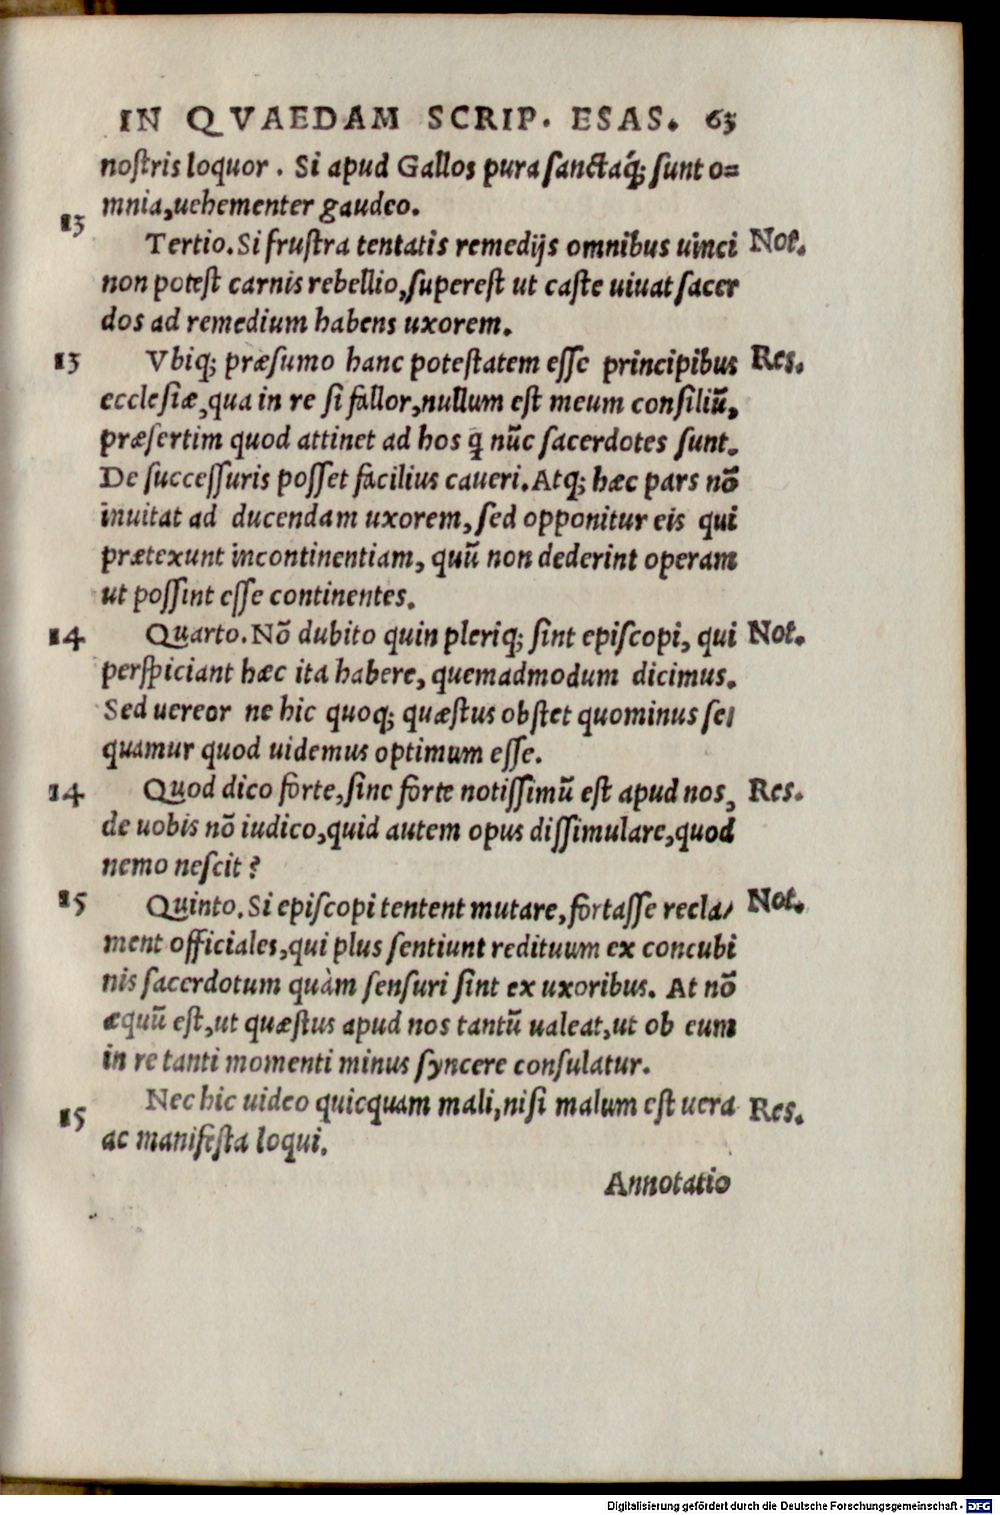 IN QVAEDAM SCRIP. ESAS. 63
nostris loquor. Si apud Gallos pura sanctaq́; sunt o=
mnia,uehementer gaudeo.
13 Tertio. Si frustra tentatis remedijs omnibus uinci Not.
non potest carnis rebellio,superest ut caste uiuat sacer
dos ad remedium habens uxorem.
13 Vbiq; præsumo hanc potestatem esse principibus Res.
ecclesiæ,qua in re si fallor,nullum est meum consiliũ,
præsertim quod attinet ad hos q̃ nũc sacerdotes sunt.
De successuris posset facilius caueri. Atq; hæc pars nõ
inuitat ad ducendam uxorem, sed opponitur eis qui
prætexunt incontinentiam, quũ non dederint operam
ut possint esse continentes.
14 Quarto. Nõ dubito quin pleriq; sint episcopi, qui Not.
perspiciant hæc ita habere, quemadmodum dicimus.
Sed uereor ne hic quoq; quæstus obstet quominus se/
quamur quod uidemus optimum esse.
14 Quod dico forte,sine forte notissimũ est apud nos, Res.
de uobis nõ iudico,quid autem opus dissimulare,quod
nemo nescit?
15 Quinto. Si episcopi tentent mutare,fortasse recla/ Not.
ment officiales,qui plus sentiunt redituum ex concubi
nis sacerdotum quàm sensuri sint ex uxoribus. At nõ
æquũ est,ut quæstus apud nos tantũ ualeat,ut ob eum
in re tanti momenti minus syncere consulatur.
15 Nec hic uideo quicquam mali,nisi malum est uera Res.
ac manifesta loqui.
Annotatio
Digitalisierung gefördert durch die Deutsche Forschungsgemeinschaft - DFG